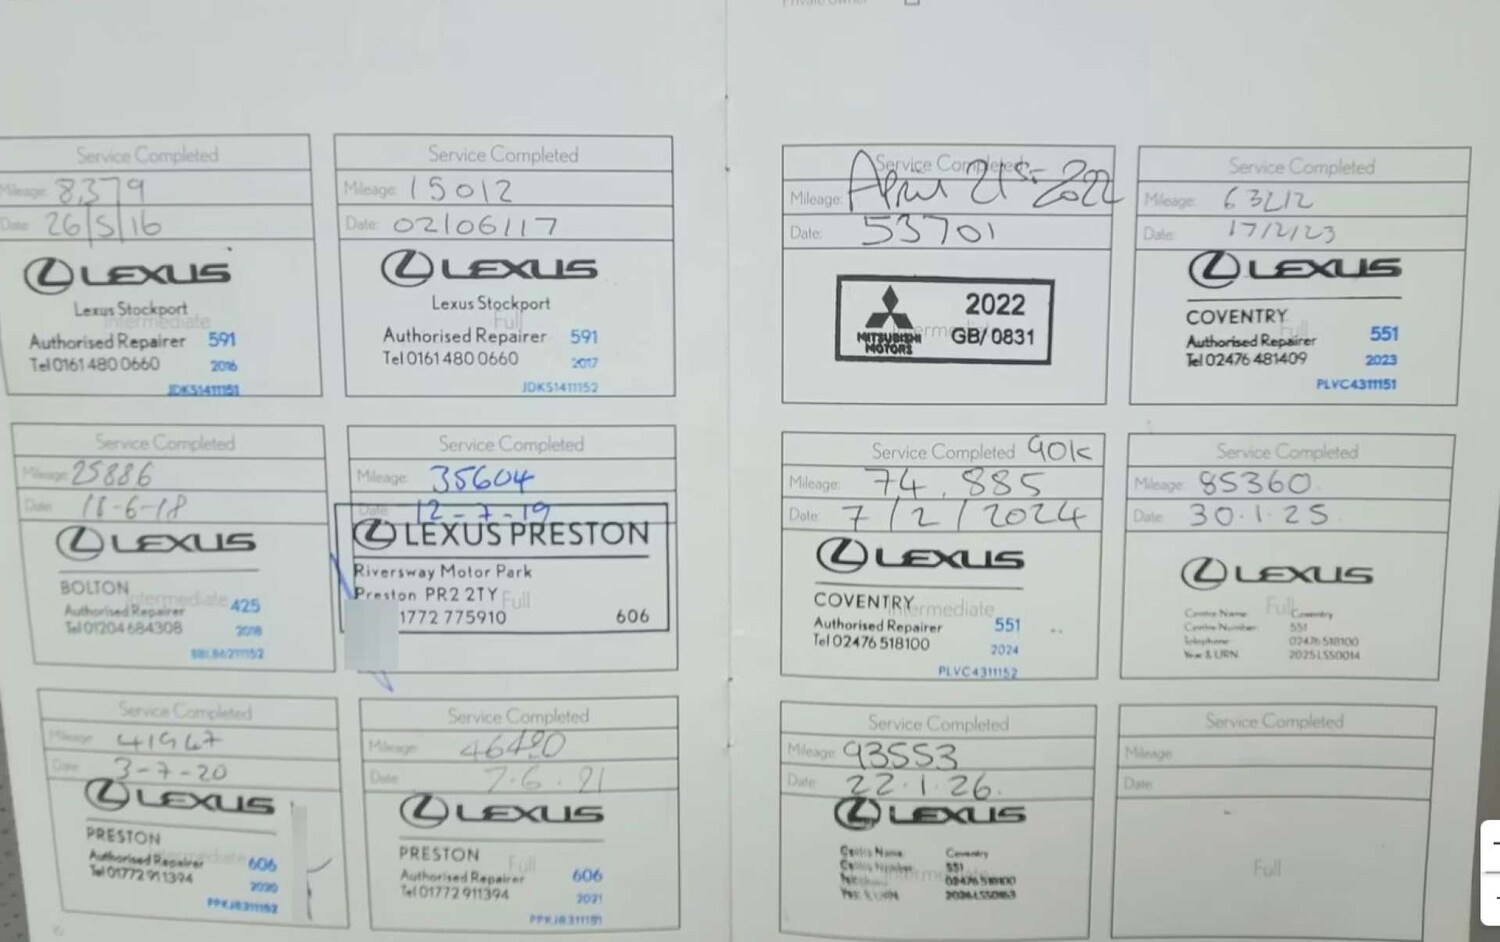 Private Owner
Service Completed
Mileage: 8,379
Date: 26/5/16
LEXUS
Lexus Stockport
Intermediate
Authorised Repairer 591
Tel 0161 480 0660 2016
JDKS1411151
Service Completed
Mileage: 15012
Date: 02/06/17
LEXUS
Lexus Stockport
Full
Authorised Repairer 591
Tel 0161 480 0660 2017
JDKS1411152
Service Completed
Mileage: 25886
Date:
LEXUS
BOLTON
Intermediate
Authorised Repairer 425
Tel 01204 684308 2018
Service Completed
Mileage: 35604
Date: 12-7-19
LEXUS PRESTON
Riversway Motor Park
Preston PR2 2TY
Full
1772 775910 606
Service Completed
Mileage: 41947
Date: 3-7-20
LEXUS
PRESTON
Intermediate
Authorised Repairer 606
Tel 01772 911394 2020
Service Completed
Mileage:
Date: 7.6.21
LEXUS
PRESTON
Full
Authorised Repairer 606
Tel 01772 911394 2021
Service Completed
Mileage: April 21st 2022
Date: 53701
Intermediate
MITSUBISHI MOTORS
2022
GB/0831
Service Completed
Mileage:
Date: 17/2/23
LEXUS
COVENTRY
Full
Authorised Repairer 551
Tel 02476 481409 2023
PLVC4311151
Service Completed 90k
Mileage: 74,885
Date: 7/2/2024
LEXUS
COVENTRY
Intermediate
Authorised Repairer 551
Tel 02476 518100 2024
PLVC4311152
Service Completed
Mileage: 85360
Date: 30.1.25
LEXUS
Full
Centre Name Coventry
Centre Number 551
Telephone 02476 518100
Year & URN 2025LSS0014
Service Completed
Mileage: 93553
Date: 22.1.26.
LEXUS
Intermediate
Centre Name Coventry
Centre Number 551
Telephone 02476 518100
Year & URN
Service Completed
Mileage:
Date:
Full